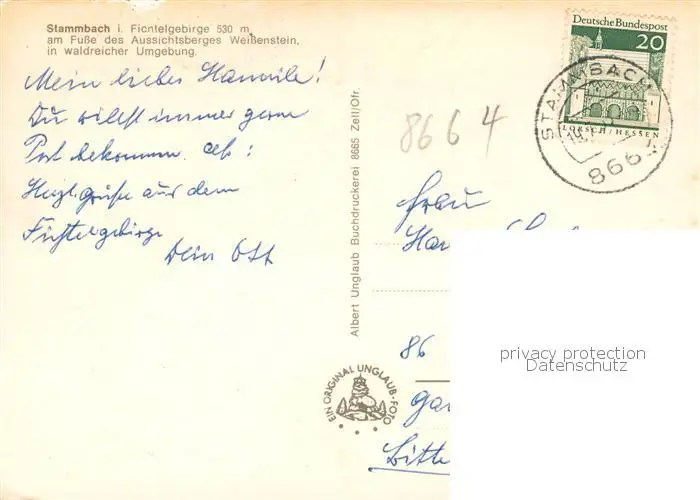 Stammbach i. Fichtelgebirge 530 m,
am Fuße des Aussichtsberges Weißenstein,
in waldreicher Umgebung.
Mein liebes Hannile!
Du willst immer gerne
Post bekommen. also:
Herzl. grüße aus dem
Fichtelgebirge
Dein Ott
Albert Unglaub Buchdruckerei 8665 Zell/Ofr.
EIN ORIGINAL UNGLAUB-FOTO
Deutsche Bundespost
20
LORSCH/HESSEN
STAMMBACH
866
8664
Frau
86
Bitte
privacy protection
Datenschutz